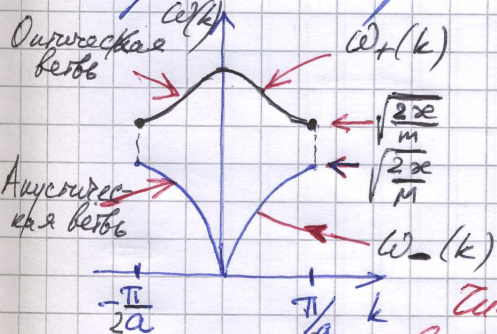 ω(k)
Оптическая
ветвь
ω₊(k)
√(2æ/m)
√(2æ/M)
Акустичес-
кая ветвь
ω₋(k)
-π/2a
π/a
k